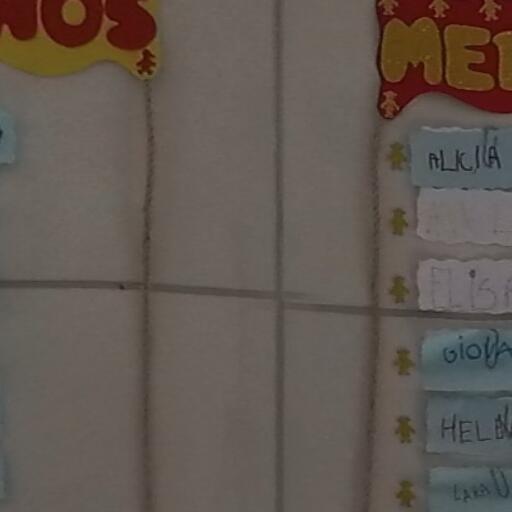 NOS
MEN
ALICIA
ELISA
GIOVA
HELEN
LARA